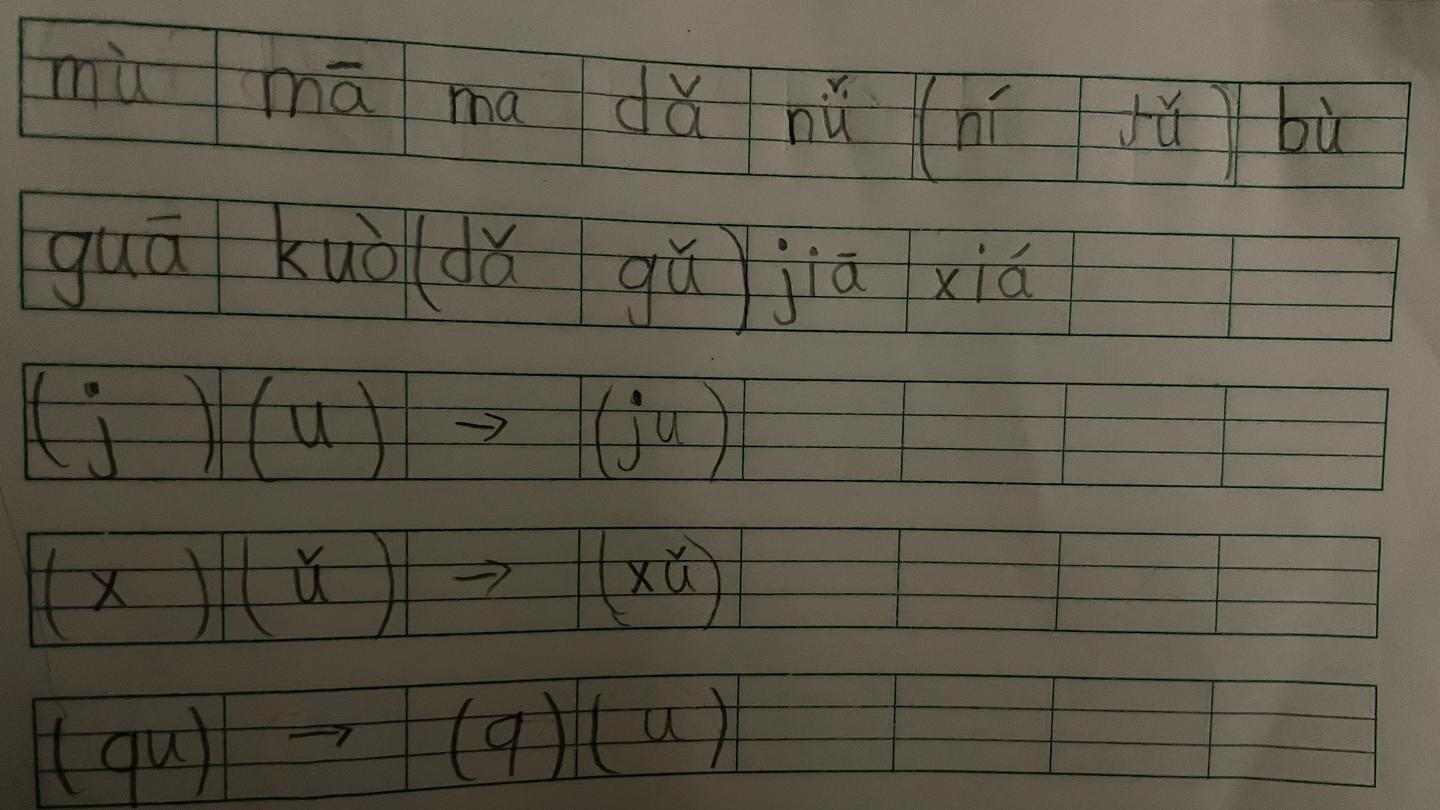 mù mā ma dǎ nǚ (ní tǔ) bù
guā kuò (dǎ gǔ) jiā xiá
(j) (u) → (ju)
(x) (ǔ) → (xǔ)
(qu) → (q) (u)